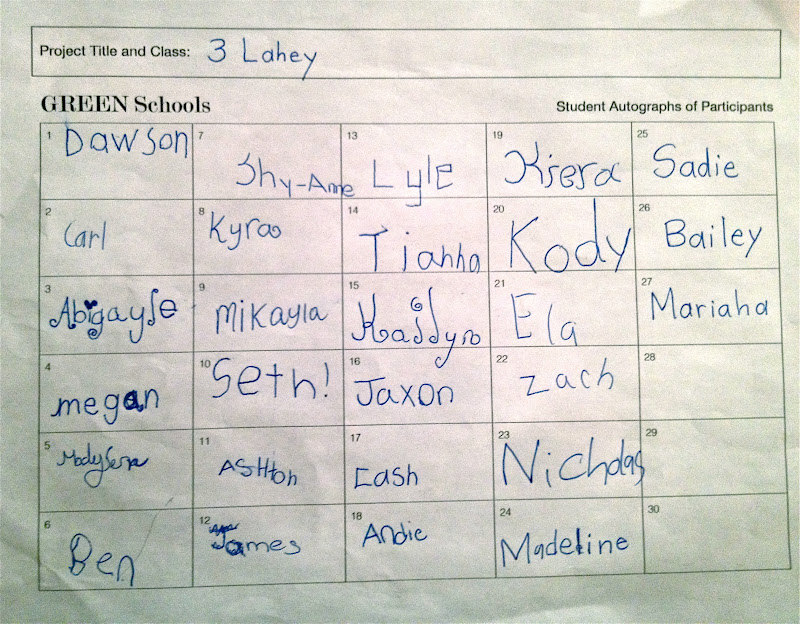 Project Title and Class: 3 Lahey
GREEN Schools Student Autographs of Participants
1 Dawson 7 Shy-Ame 13 Lyle 19 Kiera 25 Sadie
2 Carl 8 Kyra 14 Tianna 20 Kody 26 Bailey
3 Abigayle 9 Mikayla 15 Kaidyn 21 Ela 27 Mariaha
4 megan 10 Seth! 16 Jaxon 22 zach 28
5 11 ASHton 17 Cash 23 Nicholas 29
6 Ben 12 James 18 Andie 24 Madeline 30